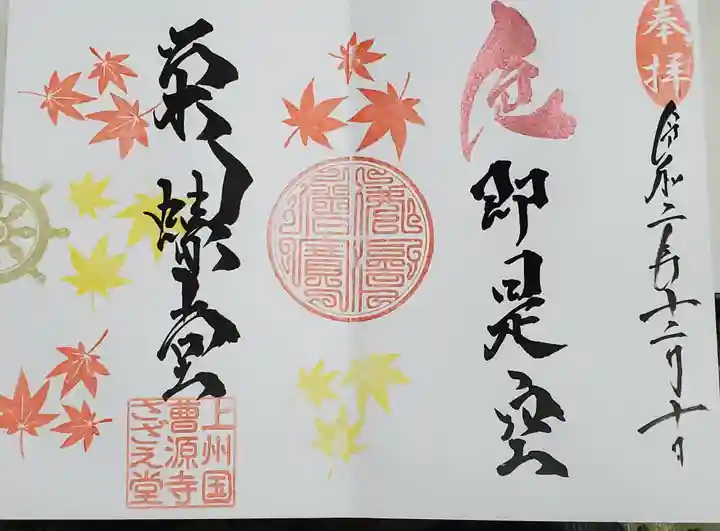 奉拝
令和二年十二月十日
色即是空
栄螺堂
上州国
曹源寺
さざえ堂